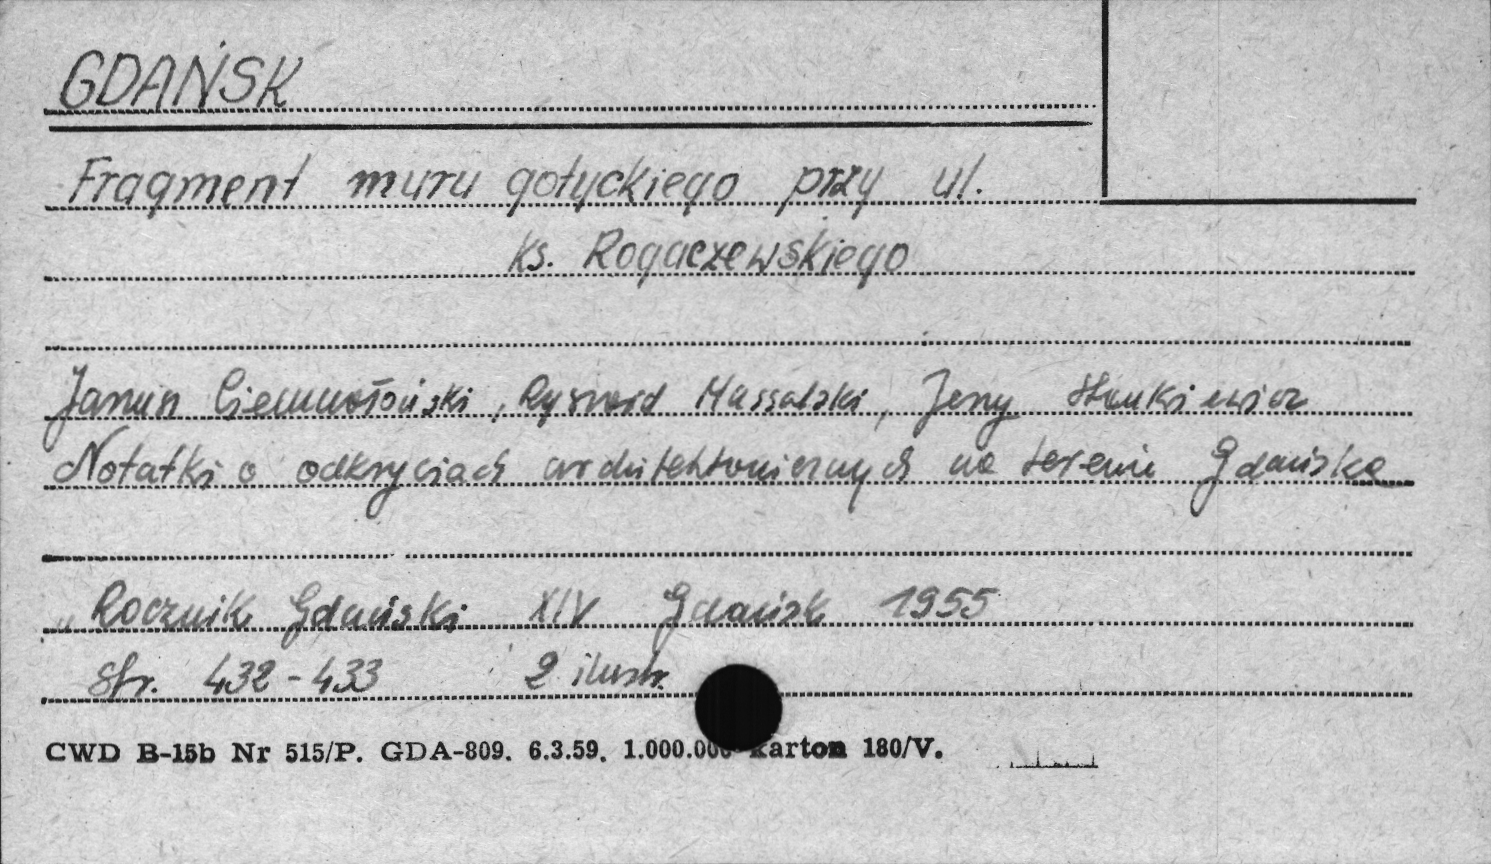 GDAŃSK
Fragment muru gotyckiego przy ul.
ks. Rogaczewskiego
Janusz Ciemnołoński, Ryszard Massalski, Jerzy Stankiewicz
Notatki o odkryciach architektonicznych na terenie Gdańska
„Rocznik Gdański XIV Gdańsk 1955
Str. 432-433 2 ilustr.
CWD B-15b Nr 515/P. GDA-809. 6.3.59. 1.000.000 karton 180/V.